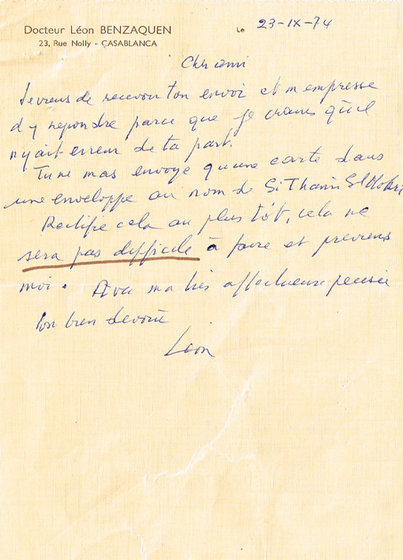 Docteur Léon BENZAQUEN
23, Rue Nolly - CASABLANCA
Le 23-IX-74
Cher ami
Je viens de recevoir ton envoi et m'empresse
d'y repondre parce que je crains qu'il
n'y ait erreur de ta part.
Tu ne m'as envoyé qu'une carte dans
une enveloppe au nom de Si Thami El
Rectifie cela au plus tôt, cela ne
sera pas difficile à faire et previens
moi. Avec ma très affectueuse pensée
Ton bien devoué
Leon